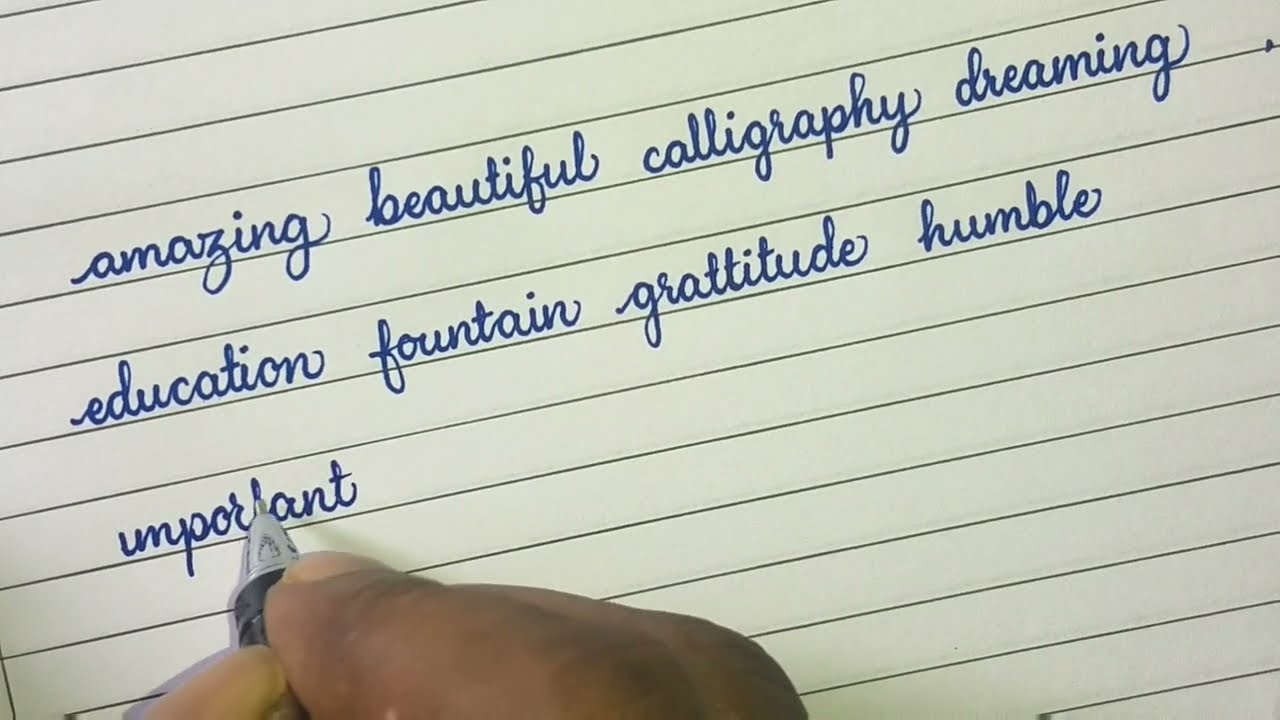 amazing beautiful calligraphy dreaming
education fountain grattitude humble
important